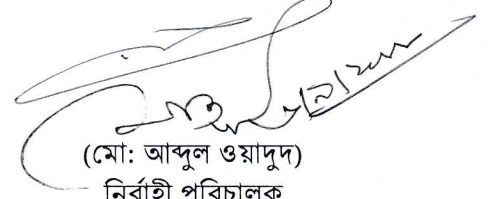 (মো: আব্দুল ওয়াদুদ)
নির্বাহী পরিচালক